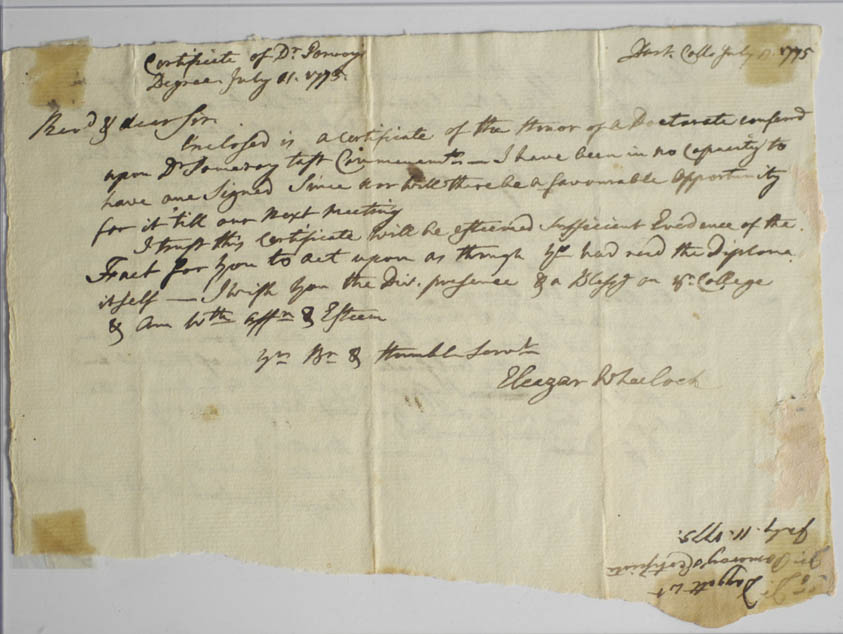 Certificate of Dr Pomroys
Degree July 11. 1775.
Dart. Colle July 11. 1775
Revd & dear Sir.
Enclosed is a certificate of the Honor of a Doctorate conferd
upon Dr Pomeroy last Commencemt — I have been in no capacity to
have one Signed Since nor will there be a favourable Opportunity
for it till our Next Meeting
I trust this Certificate will be esteemed Sufficient Evedence of the
Fact for you to act upon as though you had read the Diploma
itself — I wish you the Div. presence & a Blessg on yr College
& Am with Affn & Esteem
yr Br & Humble Servt
Eleazar Wheelock
Daggett Let
Pomeroys Certificate
July. 11. 1775.